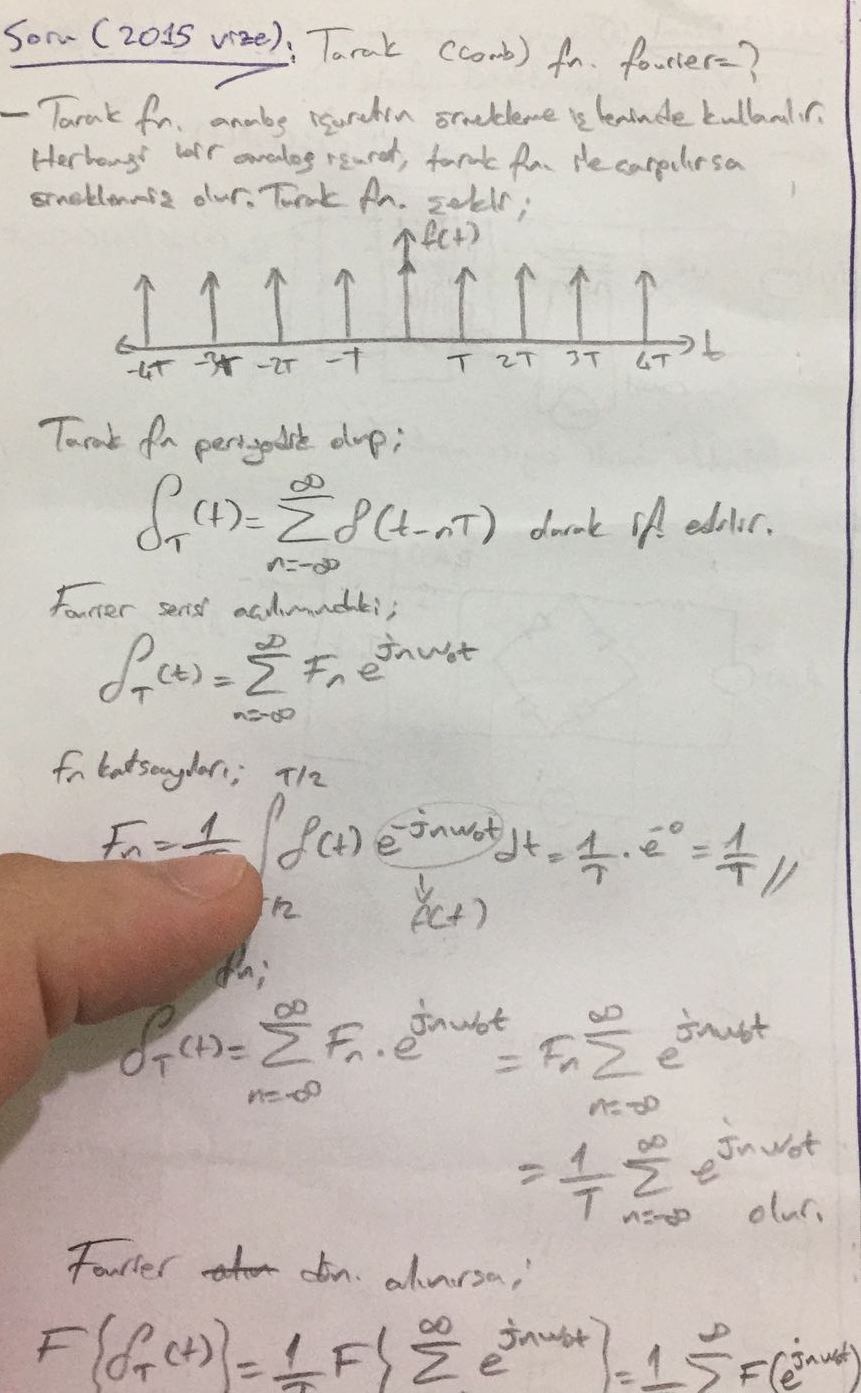 Soru (2015 vize): Tarak (comb) fn. fourier=?
- Tarak fn. analog işaretin örnekleme işleminde kullanılır.
Herhangi bir analog işaret, tarak fn. ile çarpılırsa
örneklenmiş olur. Tarak fn. şekli;
f(t)
-4T -3T -2T -T T 2T 3T 4T t
Tarak fn periyodik olup;
δ_T(t) = ∑_{n=-∞}^{∞} δ(t-nT) olarak if. edilir.
Fourier serisi açılımındaki;
δ_T(t) = ∑_{n=-∞}^{∞} F_n e^{jnw₀t}
fn katsayıları;
F_n = 1/ ∫^{T/2} δ(t) e^{-jnw₀t} dt = 1/T . e^{-0} = 1/T //
/2 f(t)
fn;
δ_T(t) = ∑_{n=-∞}^{∞} F_n . e^{jnw₀t} = F_n ∑_{n=-∞}^{∞} e^{jnw₀t}
= 1/T ∑_{n=-∞}^{∞} e^{jnw₀t} olur.
Fourier dön. alınırsa;
F{δ_T(t)} = 1/T F{∑^{∞} e^{jnw₀t}} = 1 ∑^{∞} F(e^{jnw₀t})